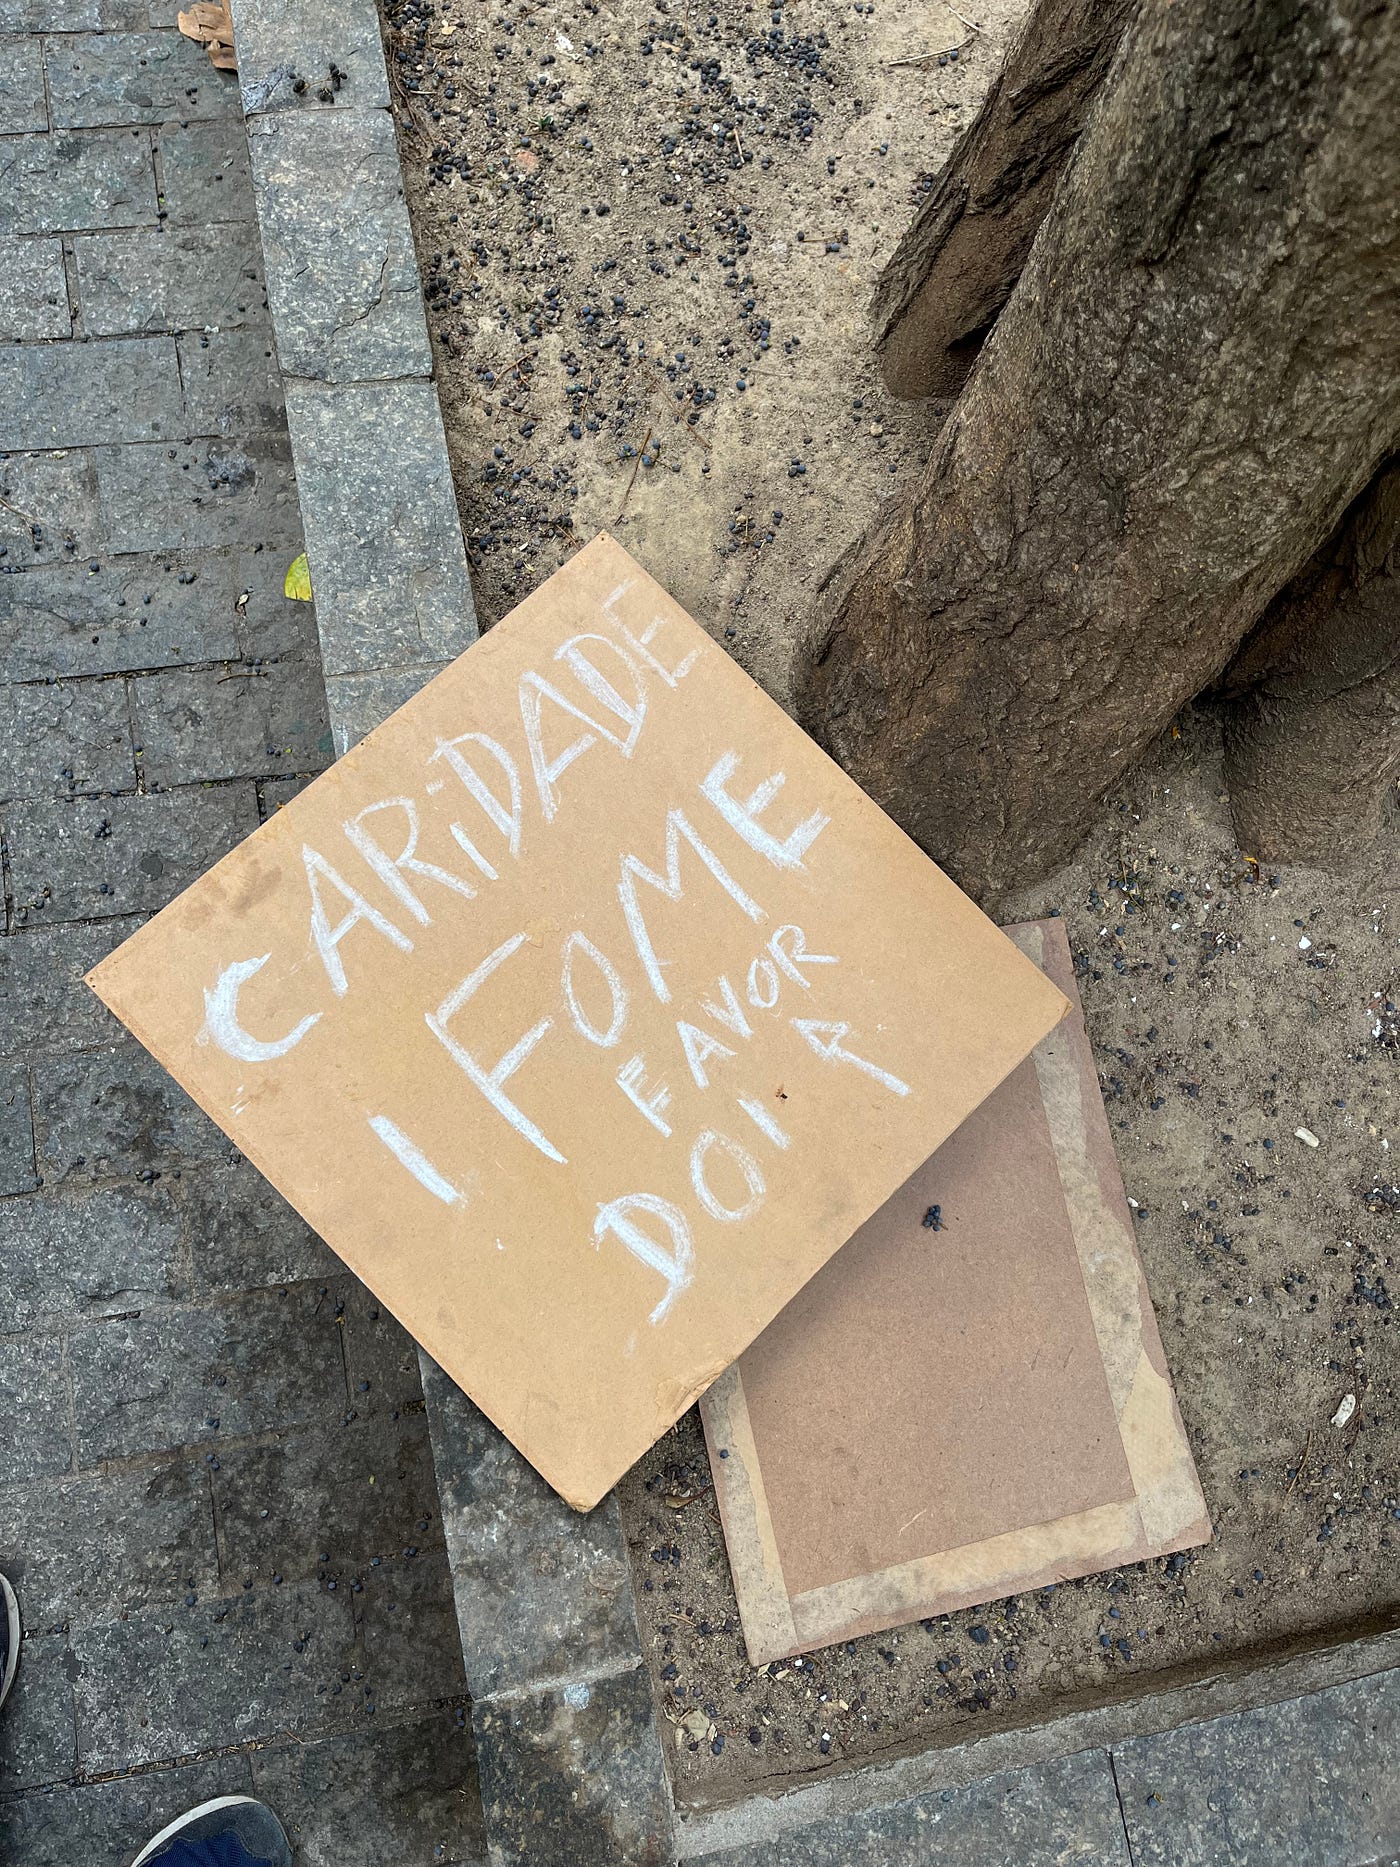 CARiDADE
I FOME
FAVOR
DOI A